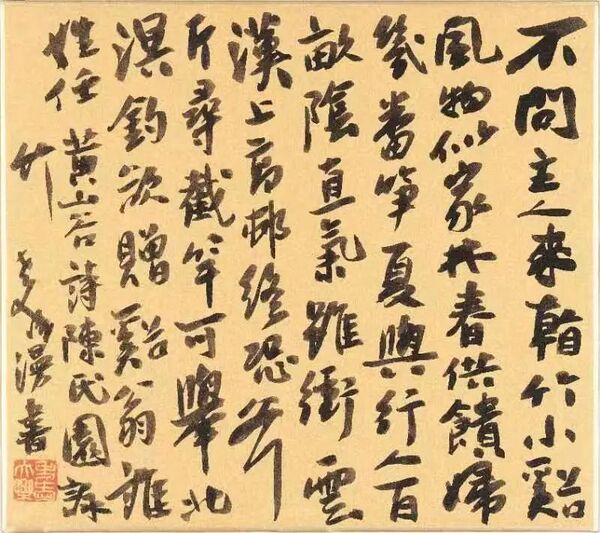 不問主人來看竹小谿
風物似家林春供饋婦
幾番筍夏與行人百
畝陰直氣雖衝雲
漢上高材終恐斧
斤尋截竿可舉北
溟釣欲贈谿翁誰
姓任 黃山谷詩陳氏園詠
竹
書